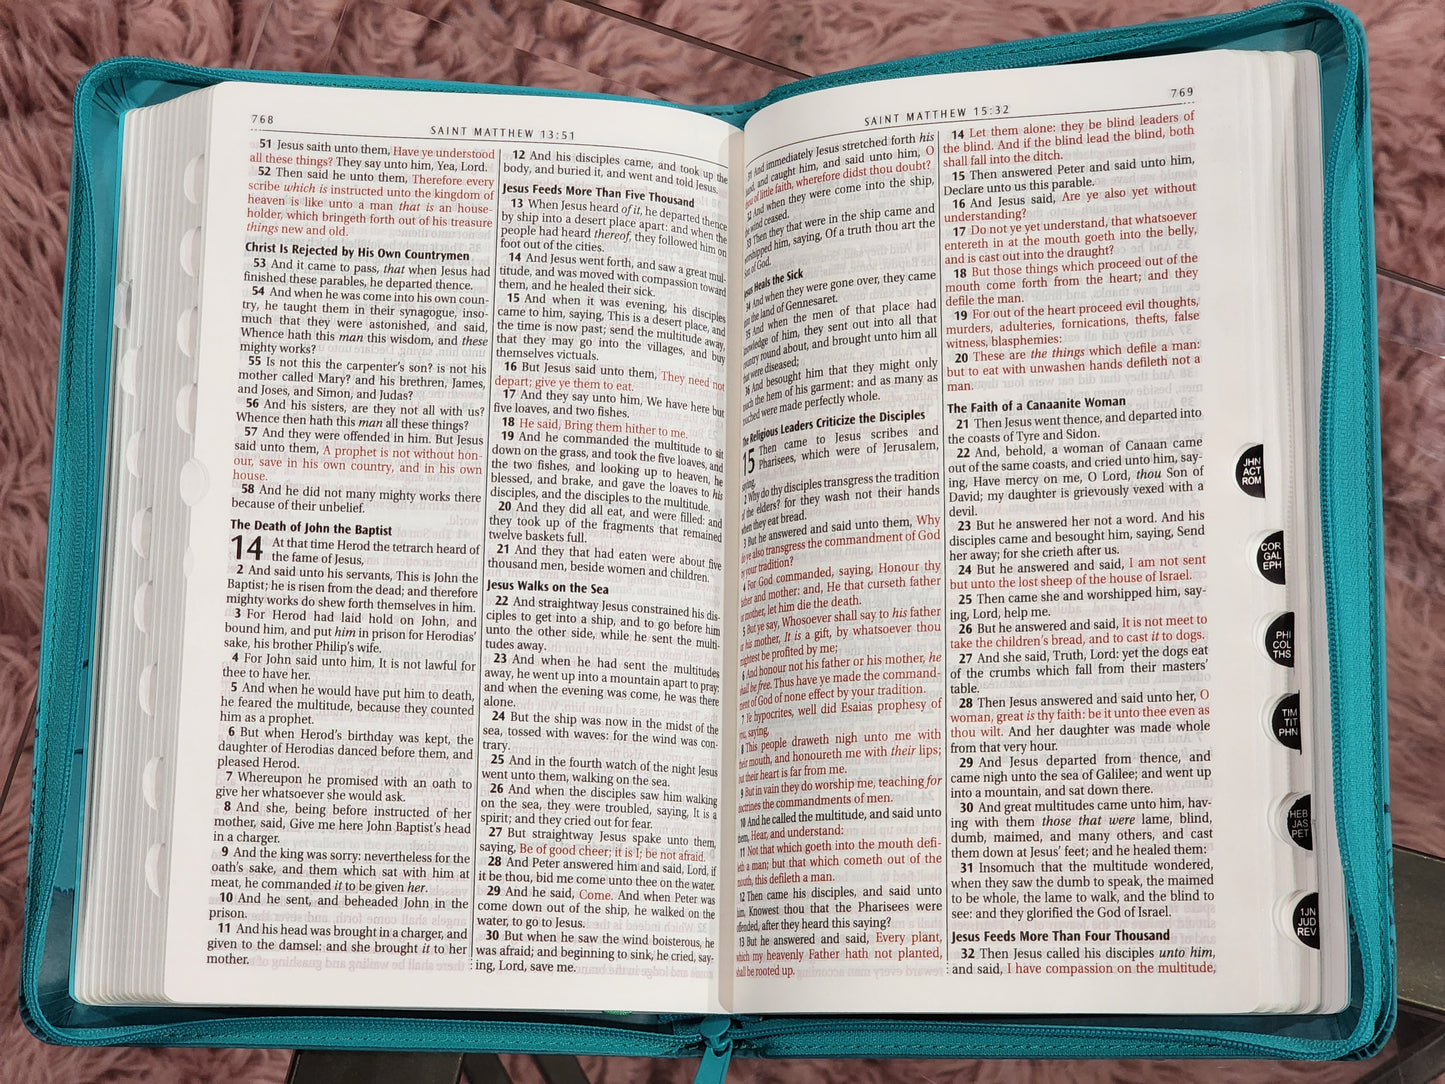 768
SAINT MATTHEW 13:51
51 Jesus saith unto them, Have ye understood
all these things? They say unto him, Yea, Lord.
52 Then said he unto them, Therefore every
scribe which is instructed unto the kingdom of
heaven is like unto a man that is an house-
holder, which bringeth forth out of his treasure
things new and old.
Christ Is Rejected by His Own Countrymen
53 And it came to pass, that when Jesus had
finished these parables, he departed thence.
54 And when he was come into his own coun-
try, he taught them in their synagogue, inso-
much that they were astonished, and said,
Whence hath this man this wisdom, and these
mighty works?
55 Is not this the carpenter's son? is not his
mother called Mary? and his brethren, James,
and Joses, and Simon, and Judas?
56 And his sisters, are they not all with us?
Whence then hath this man all these things?
57 And they were offended in him. But Jesus
said unto them, A prophet is not without hon-
our, save in his own country, and in his own
house.
58 And he did not many mighty works there
because of their unbelief.
The Death of John the Baptist
14 At that time Herod the tetrarch heard of
the fame of Jesus,
2 And said unto his servants, This is John the
Baptist; he is risen from the dead; and therefore
mighty works do shew forth themselves in him.
3 For Herod had laid hold on John, and
bound him, and put him in prison for Herodias'
sake, his brother Philip's wife.
4 For John said unto him, It is not lawful for
thee to have her.
5 And when he would have put him to death,
he feared the multitude, because they counted
him as a prophet.
6 But when Herod's birthday was kept, the
daughter of Herodias danced before them, and
pleased Herod.
7 Whereupon he promised with an oath to
give her whatsoever she would ask.
8 And she, being before instructed of her
mother, said, Give me here John Baptist's head
in a charger.
9 And the king was sorry: nevertheless for the
oath's sake, and them which sat with him at
meat, he commanded it to be given her.
10 And he sent, and beheaded John in the
prison.
11 And his head was brought in a charger, and
given to the damsel: and she brought it to her
mother.
12 And his disciples came, and took up the
body, and buried it, and went and told Jesus.
Jesus Feeds More Than Five Thousand
13 When Jesus heard of it, he departed thence
by ship into a desert place apart: and when the
people had heard thereof, they followed him on
foot out of the cities.
14 And Jesus went forth, and saw a great mul-
titude, and was moved with compassion toward
them, and he healed their sick.
15 And when it was evening, his disciples
came to him, saying, This is a desert place, and
the time is now past; send the multitude away,
that they may go into the villages, and buy
themselves victuals.
16 But Jesus said unto them, They need not
depart; give ye them to eat.
17 And they say unto him, We have here but
five loaves, and two fishes.
18 He said, Bring them hither to me.
19 And he commanded the multitude to sit
down on the grass, and took the five loaves, and
the two fishes, and looking up to heaven, he
blessed, and brake, and gave the loaves to his
disciples, and the disciples to the multitude.
20 And they did all eat, and were filled: and
they took up of the fragments that remained
twelve baskets full.
21 And they that had eaten were about five
thousand men, beside women and children.
Jesus Walks on the Sea
22 And straightway Jesus constrained his dis-
ciples to get into a ship, and to go before him
unto the other side, while he sent the multi-
tudes away.
23 And when he had sent the multitudes
away, he went up into a mountain apart to pray:
and when the evening was come, he was there
alone.
24 But the ship was now in the midst of the
sea, tossed with waves: for the wind was con-
trary.
25 And in the fourth watch of the night Jesus
went unto them, walking on the sea.
26 And when the disciples saw him walking
on the sea, they were troubled, saying, It is a
spirit; and they cried out for fear.
27 But straightway Jesus spake unto them,
saying, Be of good cheer; it is I; be not afraid.
28 And Peter answered him and said, Lord, if
it be thou, bid me come unto thee on the water.
29 And he said, Come. And when Peter was
come down out of the ship, he walked on the
water, to go to Jesus.
30 But when he saw the wind boisterous, he
was afraid; and beginning to sink, he cried, say-
ing, Lord, save me.
SAINT MATTHEW 15:32
769
And immediately Jesus stretched forth his
and caught him, and said unto him, O
of little faith, wherefore didst thou doubt?
And when they were come into the ship,
wind ceased.
Then they that were in the ship came and
worshipped him, saying, Of a truth thou art the
Son of God.
Jesus Heals the Sick
And when they were gone over, they came
the land of Gennesaret.
And when the men of that place had
knowledge of him, they sent out into all that
country round about, and brought unto him all
were diseased;
And besought him that they might only
touch the hem of his garment: and as many as
touched were made perfectly whole.
The Religious Leaders Criticize the Disciples
15 Then came to Jesus scribes and
Pharisees, which were of Jerusalem,
saying,
2 Why do thy disciples transgress the tradition
of the elders? for they wash not their hands
when they eat bread.
3 But he answered and said unto them, Why
do ye also transgress the commandment of God
by your tradition?
4 For God commanded, saying, Honour thy
father and mother: and, He that curseth father
or mother, let him die the death.
5 But ye say, Whosoever shall say to his father
or his mother, It is a gift, by whatsoever thou
mightest be profited by me;
6 And honour not his father or his mother, he
shall be free. Thus have ye made the command-
ment of God of none effect by your tradition.
7 Ye hypocrites, well did Esaias prophesy of
you, saying,
8 This people draweth nigh unto me with
their mouth, and honoureth me with their lips;
but their heart is far from me.
9 But in vain they do worship me, teaching for
doctrines the commandments of men.
10 And he called the multitude, and said unto
them, Hear, and understand:
11 Not that which goeth into the mouth defi-
leth a man; but that which cometh out of the
mouth, this defileth a man.
12 Then came his disciples, and said unto
him, Knowest thou that the Pharisees were
offended, after they heard this saying?
13 But he answered and said, Every plant,
which my heavenly Father hath not planted,
shall be rooted up.
14 Let them alone: they be blind leaders of
the blind. And if the blind lead the blind, both
shall fall into the ditch.
15 Then answered Peter and said unto him,
Declare unto us this parable.
16 And Jesus said, Are ye also yet without
understanding?
17 Do not ye yet understand, that whatsoever
entereth in at the mouth goeth into the belly,
and is cast out into the draught?
18 But those things which proceed out of the
mouth come forth from the heart; and they
defile the man.
19 For out of the heart proceed evil thoughts,
murders, adulteries, fornications, thefts, false
witness, blasphemies:
20 These are the things which defile a man:
but to eat with unwashen hands defileth not a
man.
The Faith of a Canaanite Woman
21 Then Jesus went thence, and departed into
the coasts of Tyre and Sidon.
22 And, behold, a woman of Canaan came
out of the same coasts, and cried unto him, say-
ing, Have mercy on me, O Lord, thou Son of
David; my daughter is grievously vexed with a
devil.
23 But he answered her not a word. And his
disciples came and besought him, saying, Send
her away; for she crieth after us.
24 But he answered and said, I am not sent
but unto the lost sheep of the house of Israel.
25 Then came she and worshipped him, say-
ing, Lord, help me.
26 But he answered and said, It is not meet to
take the children's bread, and to cast it to dogs.
27 And she said, Truth, Lord: yet the dogs eat
of the crumbs which fall from their masters'
table.
28 Then Jesus answered and said unto her, O
woman, great is thy faith: be it unto thee even as
thou wilt. And her daughter was made whole
from that very hour.
29 And Jesus departed from thence, and
came nigh unto the sea of Galilee; and went up
into a mountain, and sat down there.
30 And great multitudes came unto him, hav-
ing with them those that were lame, blind,
dumb, maimed, and many others, and cast
them down at Jesus' feet; and he healed them:
31 Insomuch that the multitude wondered,
when they saw the dumb to speak, the maimed
to be whole, the lame to walk, and the blind to
see: and they glorified the God of Israel.
Jesus Feeds More Than Four Thousand
32 Then Jesus called his disciples unto him,
and said, I have compassion on the multitude,
JHN
ACT
ROM
COR
GAL
EPH
PHI
COL
THS
TIM
TIT
PHN
HEB
JAS
PET
1JN
JUD
REV